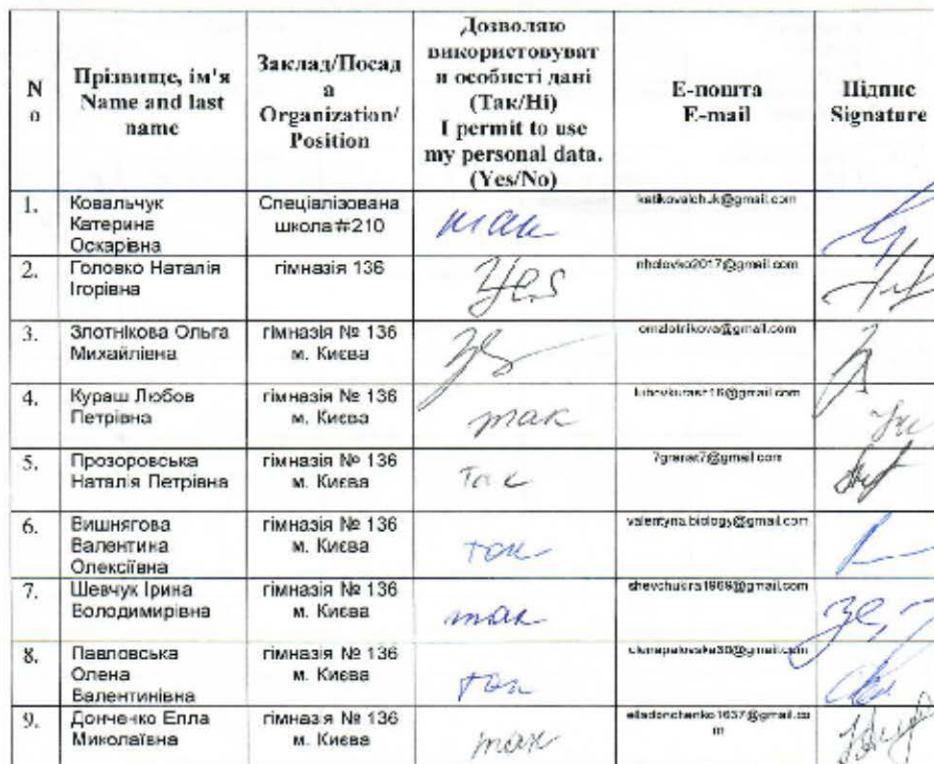 N
o
Прізвище, ім'я
Name and last
name
Заклад/Посад
а
Organization/
Position
Дозволяю
використовуват
и особисті дані
(Так/Ні)
I permit to use
my personal data.
(Yes/No)
Е-пошта
E-mail
Підпис
Signature
1.
Ковальчук
Катерина
Оскарівна
Спеціалізована
школа#210
так
katikovalchuk@gmail.com
2.
Головко Наталія
Ігорівна
гімназія 136
Yes
nholovko2017@gmail.com
3.
Злотнікова Ольга
Михайлівна
гімназія № 136
м. Києва
Yes
omzlotnikova@gmail.com
4.
Кураш Любов
Петрівна
гімназія № 136
м. Києва
так
5.
Прозоровська
Наталія Петрівна
гімназія № 136
м. Києва
так
7granat7@gmail.com
6.
Вишнягова
Валентина
Олексіївна
гімназія № 136
м. Києва
так
valentyna.biology@gmail.com
7.
Шевчук Ірина
Володимирівна
гімназія № 136
м. Києва
так
8.
Павловська
Олена
Валентинівна
гімназія № 136
м. Києва
так
9.
Донченко Елла
Миколаївна
гімназія № 136
м. Києва
так
elladonchenko1637@gmail.co
m